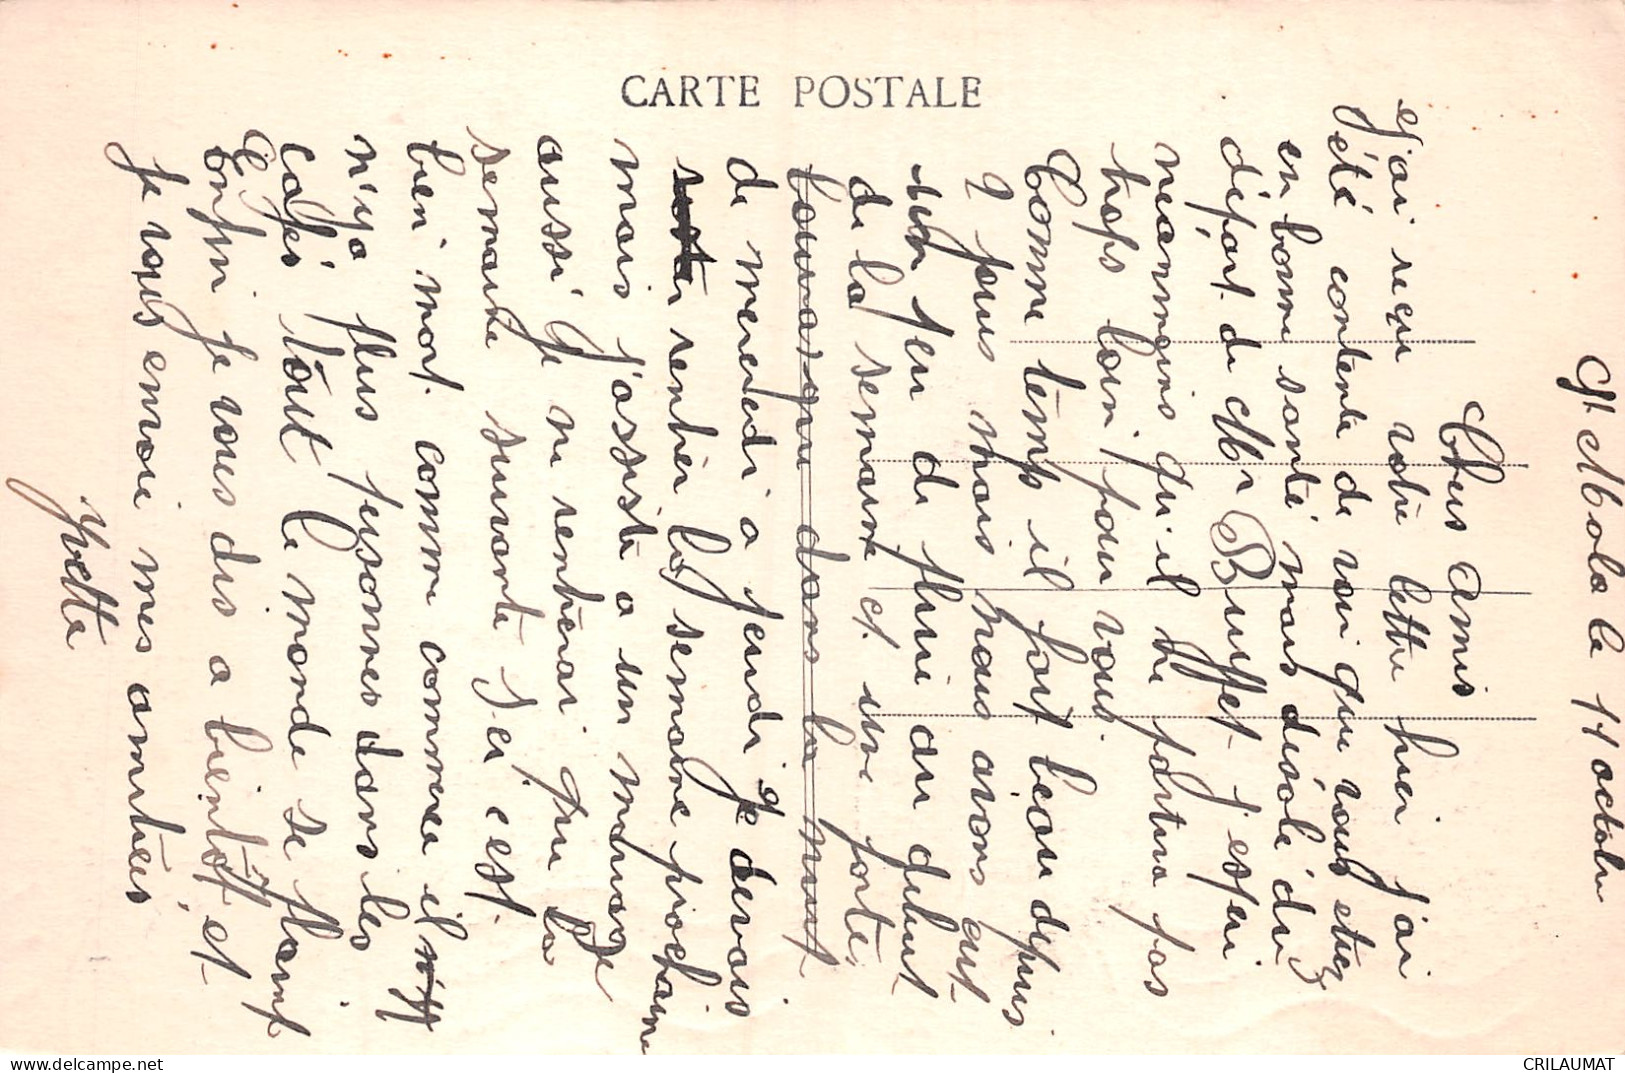 CARTE POSTALE
St Mola le 11 octobre
Chers amis
j'ai reçu votre lettre hier j'ai
été contente de voir que vous etiez
en bonne santé mais désolé du
départ de Mr Buffet j'espere
neanmoins qu'il ne partira pas
trops loin pour vous
Comme temps il fait beau depuis
2 jours mais nous avons eut
un peu de pluie au debut
de la semaine et une forte
bourasque dans la nuit
de mercredi a jeudi je devais
rentrer la semaine prochaine
mais j'assiste a un mariage
aussi je ne rentrerai que la
semaine suivante s'ai c'est
bien mort comme commerce il
n'ya plus persones dans les
cafés tout le monde se plaint
Enfin je vous dis a bientôt et
je vous envoie mes amitiées
Yvette
www.delcampe.net
CRILAUMAT